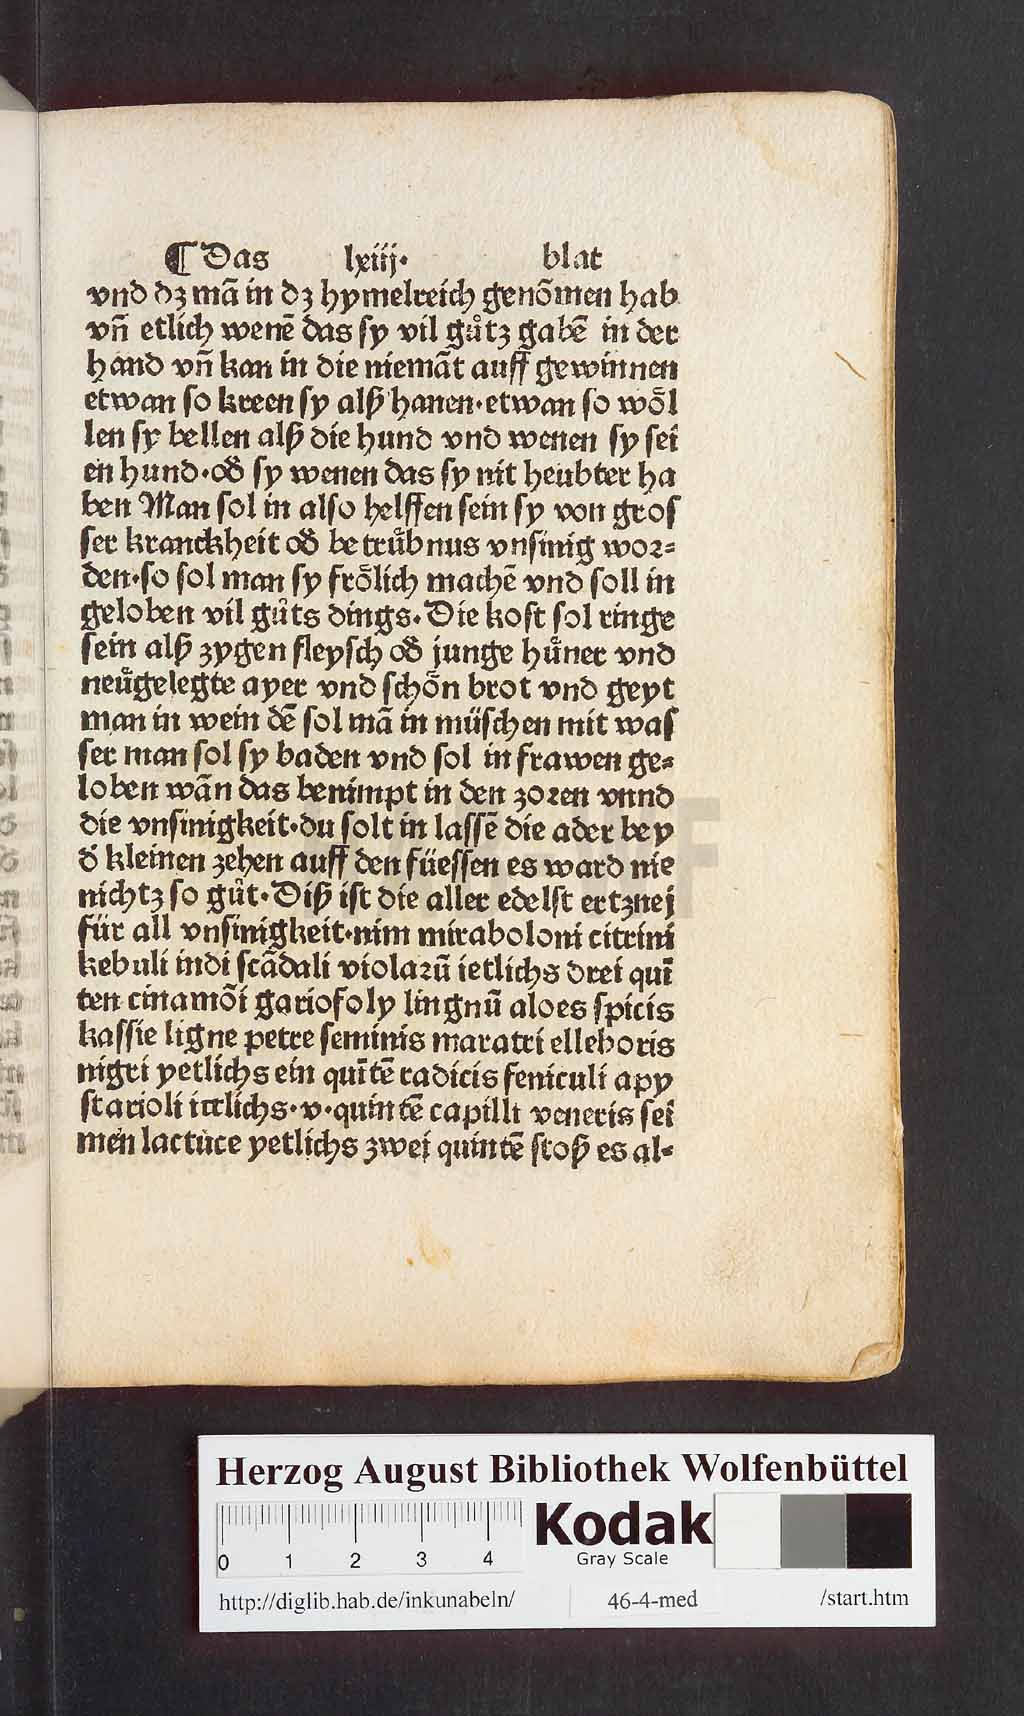 ¶ Das lxiij· blat
vnd dz mā in dz hymelreich genōmen hab
vn̄ etlich wenē das sy vil gůtz gabē in der
hand vn̄ kan in die niemāt auff gewinnen
etwan so kreen sy alß hanen·etwan so woͤl
len sy bellen alß die hund vnd wenen sy sei
en hund·od̓ sy wenen das sy nit heubter ha
ben Man sol in also helffen sein sy von gros
ser kranckheit od̓ betruͤbnus vnsinig wor⸗
den·so sol man sy froͤlich machē vnd soll in
geloben vil gůts dings·Die kost sol ringe
sein alß zygen fleysch od̓ junge huͤner vnd
neuͤgelegte ayer vnd schoͤn brot vnd geyt
man in wein dē sol mā in müschen mit was
ser man sol sy baden vnd sol in frawen ge⸗
loben wān das benimpt in den zoren vnnd
die vnsinigkeit·du solt in lassē die ader bey
d̓ kleinen zehen auff den füessen es ward nie
nichtz so gůt·Diß ist die aller edelst ertznej
für all vnsinigkeit·nim miraboloni citrini
kebuli indi scādali violarū ietlichs drei quī
ten cinamōi gariofoly lingnū aloes spicis
kassie ligne petre seminis maratri elleboris
nigri yetlichs ein quītē radicis feniculi apy
starioli itlichs·v·quintē capilli veneris sei
men lactuce yetlichs zwei quintē stoß es al⸗
Herzog August Bibliothek Wolfenbüttel
0 1 2 3 4
Kodak
Gray Scale
http://diglib.hab.de/inkunabeln/ 46-4-med /start.htm